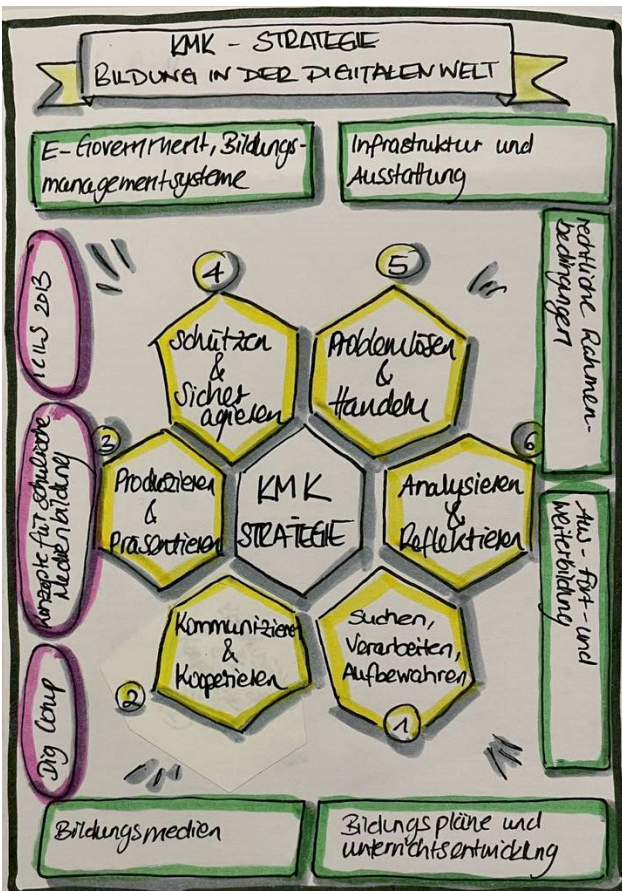 KMK - STRATEGIE
BILDUNG IN DER DIGITALEN WELT
E-Government, Bildungs-
managementsysteme
Infrastruktur und
Ausstattung
rechtliche Rahmen-
bedingungen
Aus- fort- und
weiterbildung
ICILS 2013
Konzepte für schulische
Medienbildung
Dig Comp
4
Schützen
&
Sicher
agieren
5
Problemlösen
&
Handeln
3
Produzieren
&
Präsentieren
KMK
STRATEGIE
6
Analysieren
&
Reflektieren
Kommunizieren
&
Kooperieren
2
Suchen,
Verarbeiten,
Aufbewahren
1
Bildungsmedien
Bildungspläne und
unterrichtsentwicklung